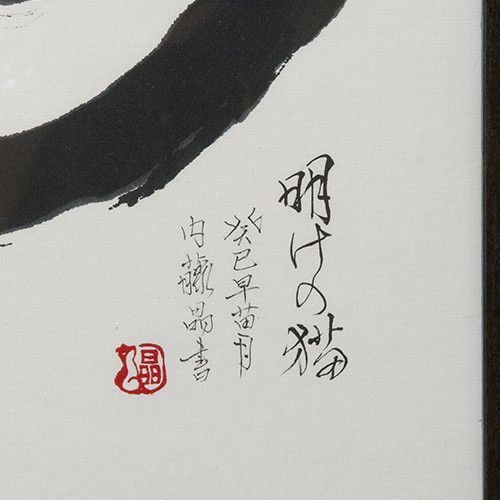 明けの猫
癸巳早苗月
内藤晶書
晶